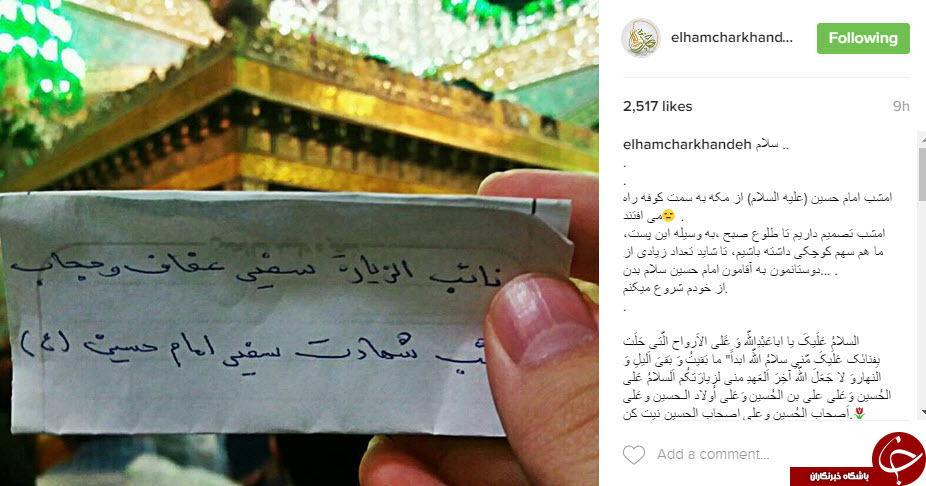 نائب الزیارة سفیر عفاف و حجاب
شهادت سفیر امام حسین (ع)
elhamcharkhand...
Following
2,517 likes
9h
elhamcharkhandeh سلام ..
.
.
امشب امام حسین (علیه السلام) از مکه به سمت کوفه راه
می افتند😔 .
امشب تصمیم داریم تا طلوع صبح ،به وسیله این پست،
ما هم سهم کوچکی داشته باشیم، تا شاید تعداد زیادی از
دوستانمون به آقامون امام حسین سلام بدن... .
از خودم شروع میکنم.
.
السلامُ عَلَیکَ یا اباعَبْدِاللَّهِ وَ عَلَی الاَرواحِ الَّتی حَلَت
بِفِنائِک عَلَیکَ مِّنی سلامُ اللَّه ابداً" ما بَقیتُ وَ بَقیَ الَلیلِ وَ
النهاروَ لا جَعَلَ اللَّه آخِرَ اَلعَهدِ منی لزیارَتکُم اَلسلامُ عَلی
الحُسین وَعَلی علی بن الحُسین وَعَلی أولاد الـحسین وعَلی
أصحاب الحُسین وعلی اصحاب الحسین نیت کن.🌷
Add a comment...
باشگاه خبرنگاران